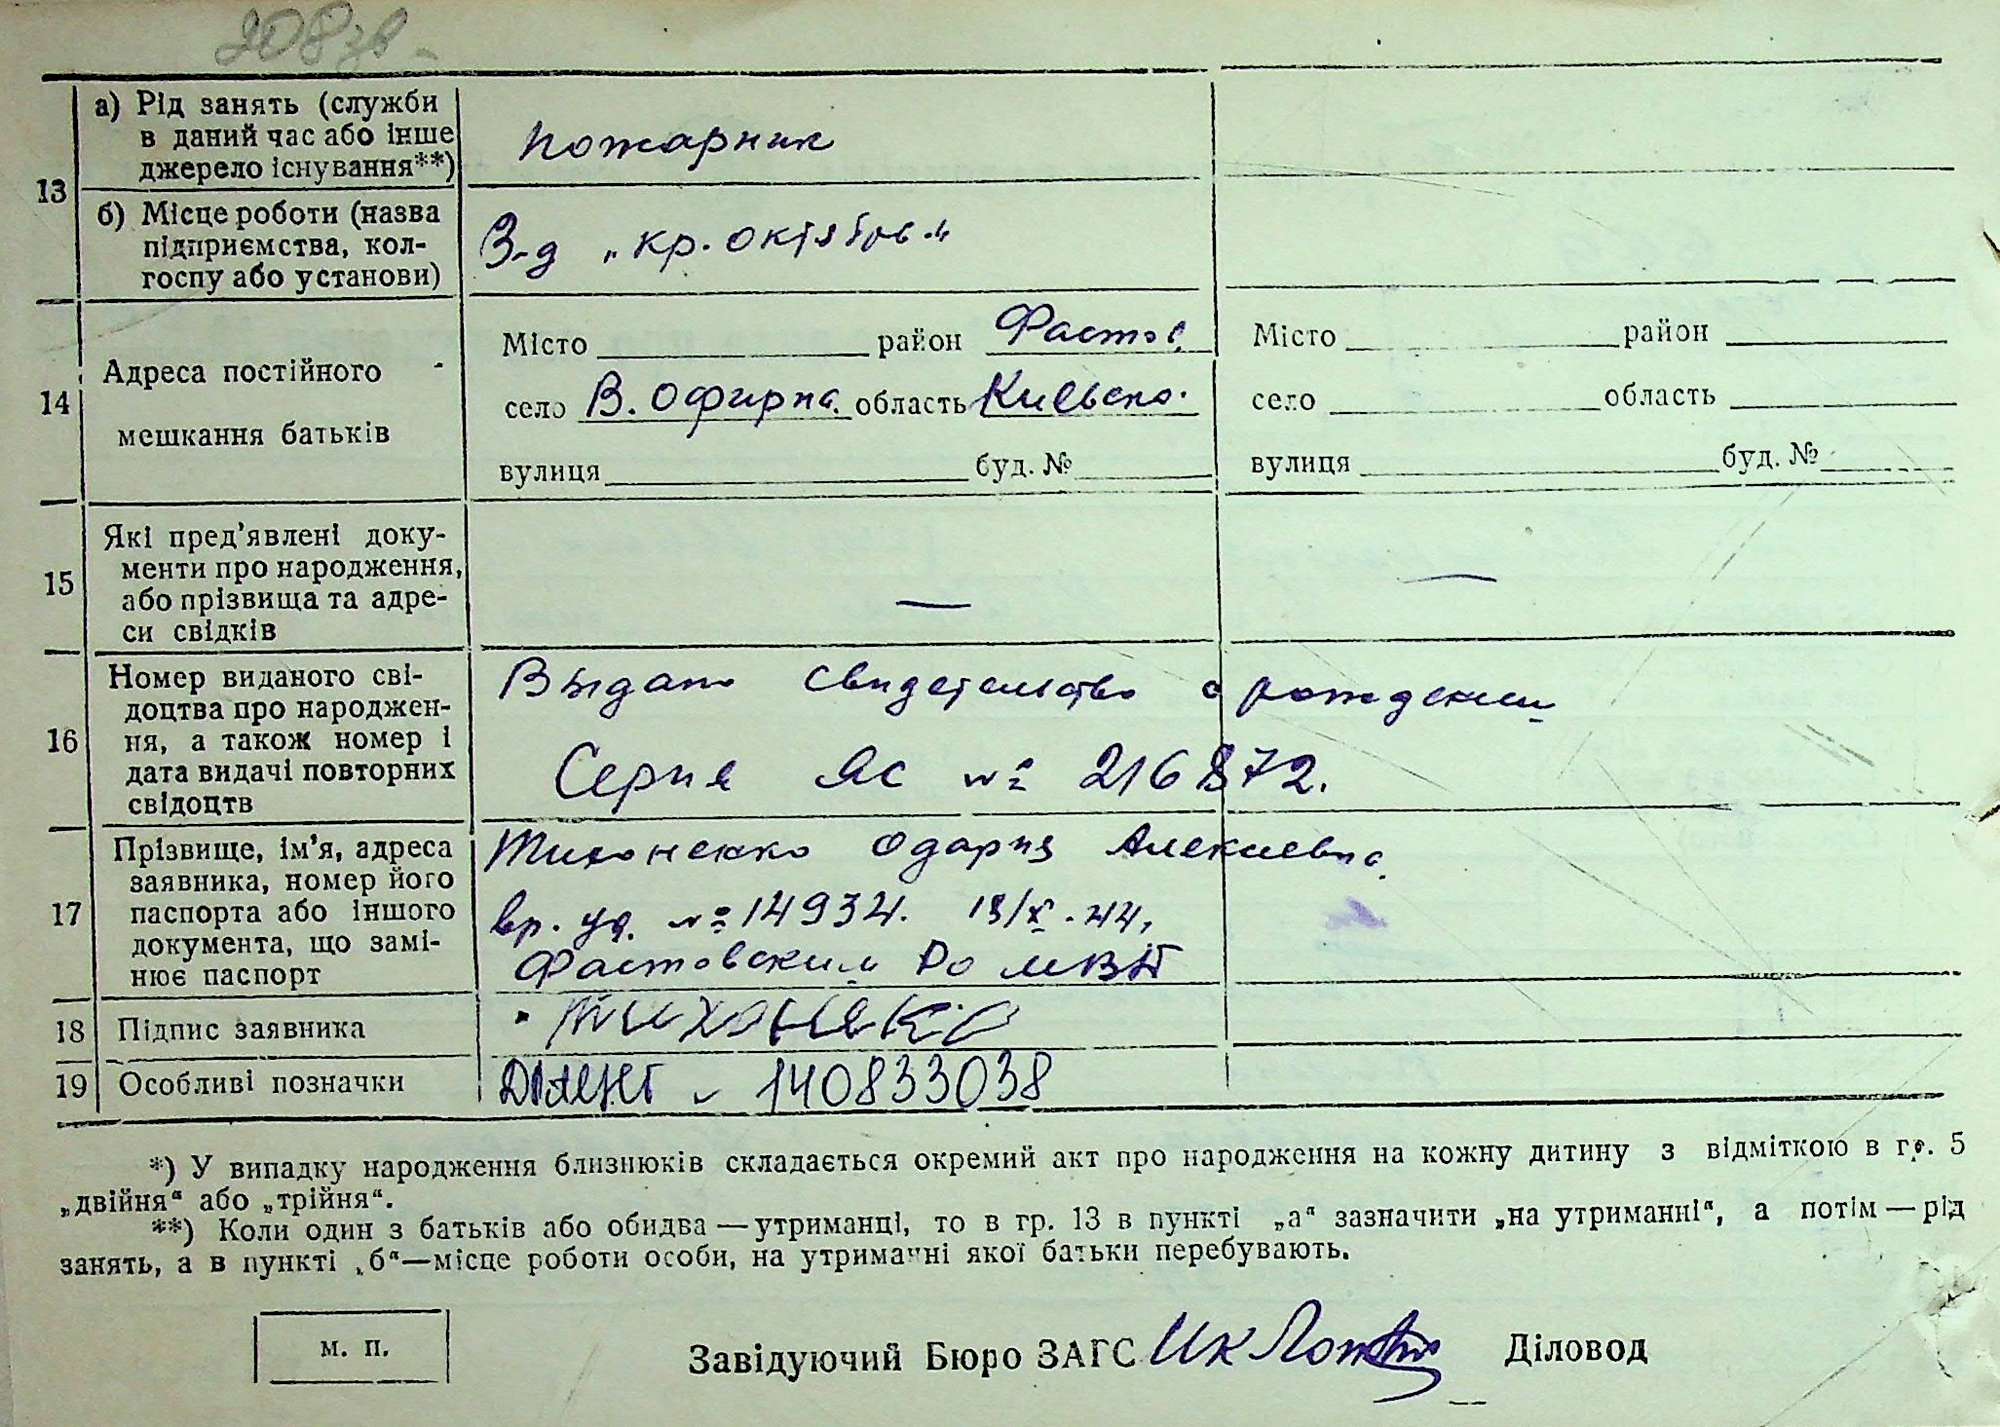 208зв.
13
а) Рід занять (служби
в даний час або інше
джерело існування**)
пожарник
б) Місце роботи (назва
підприємства, кол-
госпу або установи)
З-д „кр. октябрь"
14
Адреса постійного
мешкання батьків
Місто район Фастов.
село В. Офирна. область Киевско.
вулиця буд. №
Місто район
село область
вулиця буд. №
15
Які пред'явлені доку-
менти про народження,
або прізвища та адре-
си свідків
—
—
16
Номер виданого сві-
доцтва про народжен-
ня, а також номер і
дата видачі повторних
свідоцтв
Выдано свидетельство о рождении
Серия ЯС № 216872.
17
Прізвище, ім'я, адреса
заявника, номер його
паспорта або іншого
документа, що замі-
нює паспорт
Тихоненко Одария Алексеевна
вр. уд. № 14934. 13/X-44,
Фастовским Ро МВД
18
Підпис заявника
Тихоненко
19
Особливі позначки
140833038
*) У випадку народження близнюків складається окремий акт про народження на кожну дитину з відміткою в гр. 5
„двійня“ або „трійня“.
**) Коли один з батьків або обидва—утриманці, то в гр. 13 в пункті „а“ зазначити „на утриманні“, а потім—рід
занять, а в пункті „б“—місце роботи особи, на утриманні якої батьки перебувають.
м. п.
Завідуючий Бюро ЗАГС
Діловод